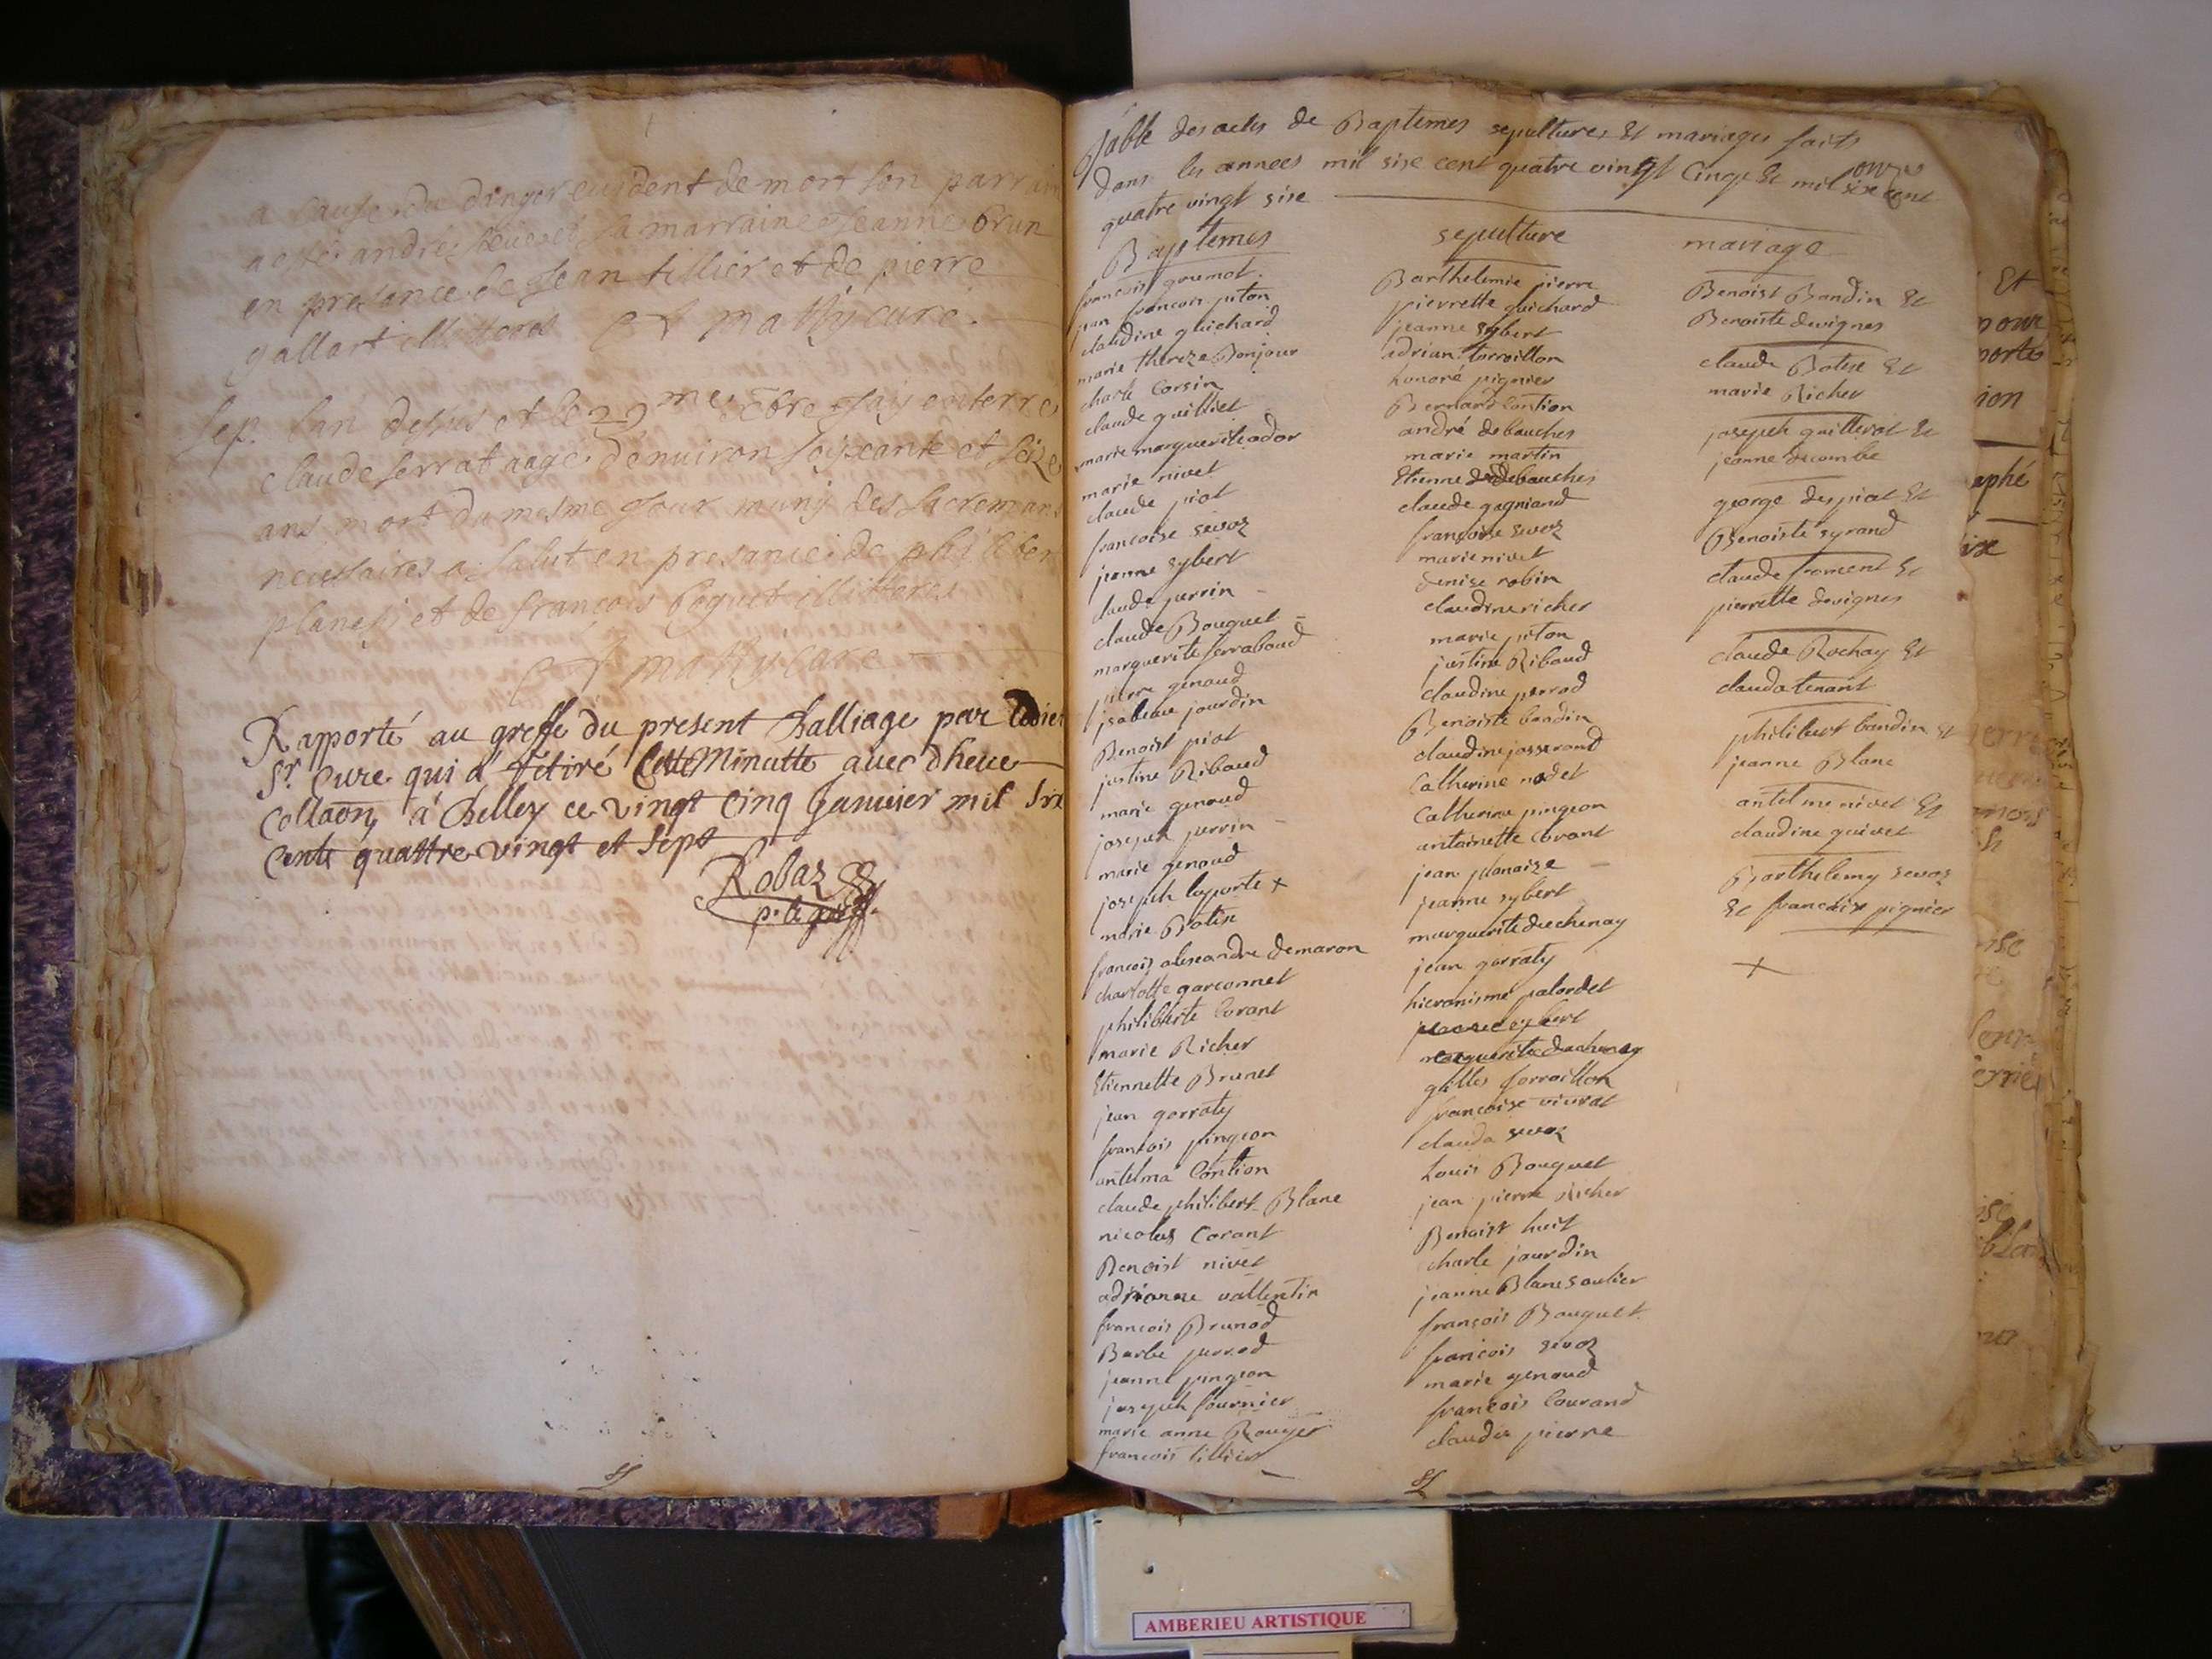 a cause du danger euident de mort son parrain
a esté andré et sa marraine Jeanne brun
en presence de Jean tillier et de pierre
gallart illitteres mathy curé.
Sep. l'an dessus et le 29me xbre J'ay enterré
claude serrat aagé d'enuiron soixante et seize
ans mort du mesme Jour muny des sacremans
necessaires a salut en presance de philiber
planest et de françois boguet illitteres
mathy curé
Rapporté au greffe du present Balliage par Ledict
Sr Curé qui a retiré Cette Minutte auec dheue
Collaõn à Belley ce vingt Cinq Januier mil six
Cents quattre vingt et sept
Robaz
p. le greff.
Table des actes de Baptemes sepultures Et mariages faits
dans les annees mil sixe cent quatre vingt Cinqe Et mil six cent
quatre vingt sixe
Baptemes
francois goumot
jean francois piton
claudine guichard
marie thereze Bonjour
charle Corsin
claude guilliet
marie marguerite ador
marie nivet
claude piot
francoise sevoz
jeanne sybert
claude perrin
claude Bouquet
marguerite ferraboud
pierre genoud
jsabeau jourdin
Benoist piot
justine Riboud
marie genoud
joseph perrin
marie genoud
joseph laporte +
marie Botex
francois alexandre demaron
charlotte garconnet
philiberte Corant
marie Richer
Etiennette Brunet
jean garraty
francois pingeon
antelma Contion
claude philibert Blanc
nicolas Corant
Benoist nivet
adrianne vallentin
francois Brunod
Barbe perrod
jeanne pingeon
joseph fournier
marie anne Rouyer
francois tillier
sepulture
Barthelemie pierre
pierrette guichard
jeanne sybert
adrian torroillon
honoré pignier
Bernard Contion
andré debauches
marie martin
Etienne debauches
claude gagniand
francoise sevoz
marie nivet
denise robin
claudine richer
marie piton
justine Riboud
claudine perrod
Benoiste boudin
claudine josserand
Catherine nodet
Catherine pingeon
antoinette Corant
jean planaize
jeanne sybert
marguerite duchenay
jean garraty
hieronisme palordet
gilles forroillon
francoise vivrat
clauda sevoz
Louis Bouquet
jean pierre Richer
Benoist huit
charle jourdin
jeanne Blanc soulier
françois Bouquet
francois sevoz
marie genoud
francois Courand
claude pierre
mariage
Benoist Boudin Et
Benoiste devignes
claude Botex Et
marie Richer
joseph guillerot Et
jeanne decombe
george despiot Et
Benoiste syrand
claude froment Et
pierrette devignes
claude Rochay Et
clauda tenant
philibert boudin Et
jeanne Blanc
antelme nivet Et
claudine guivet
Barthelemy sevoz
Et francoise pignier
+
AMBERIEU ARTISTIQUE